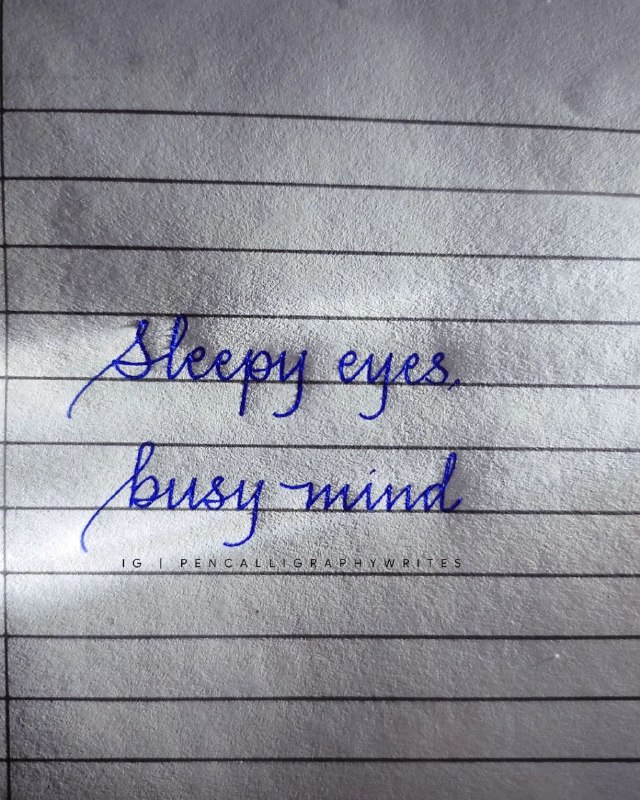 Sleepy eyes,
busy mind
IG | PENCALLIGRAPHYWRITES